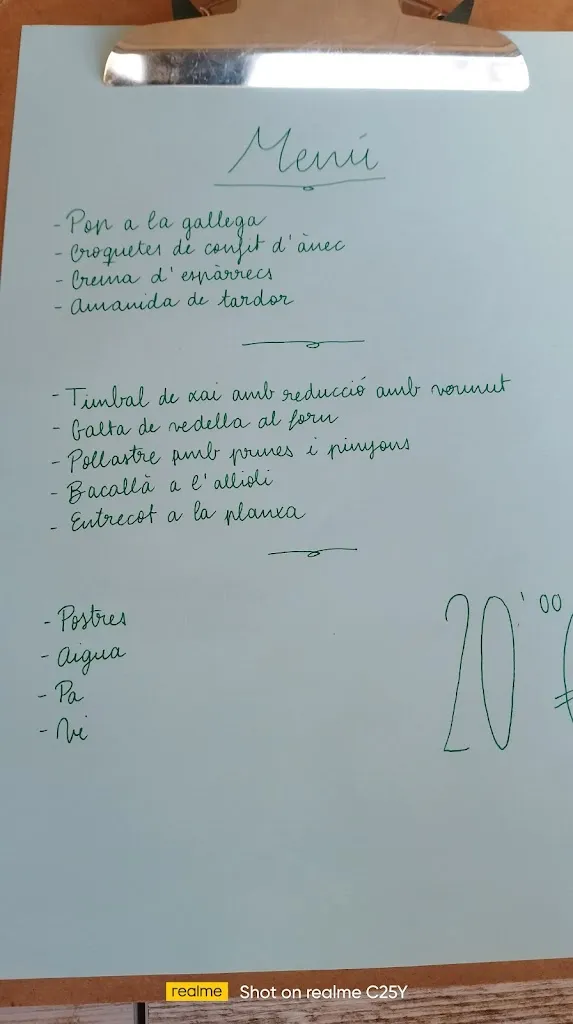 Menú
- Pop a la gallega
- Croquetes de confit d'ànec
- Crema d'espàrrecs
- Amanida de tardor
- Timbal de xai amb reducció amb vermut
- Galta de vedella al forn
- Pollastre amb prunes i pinyons
- Bacallà a l'allioli
- Entrecot a la planxa
- Postres
- Aigua
- Pa
- Vi
20'00 €
realme Shot on realme C25Y